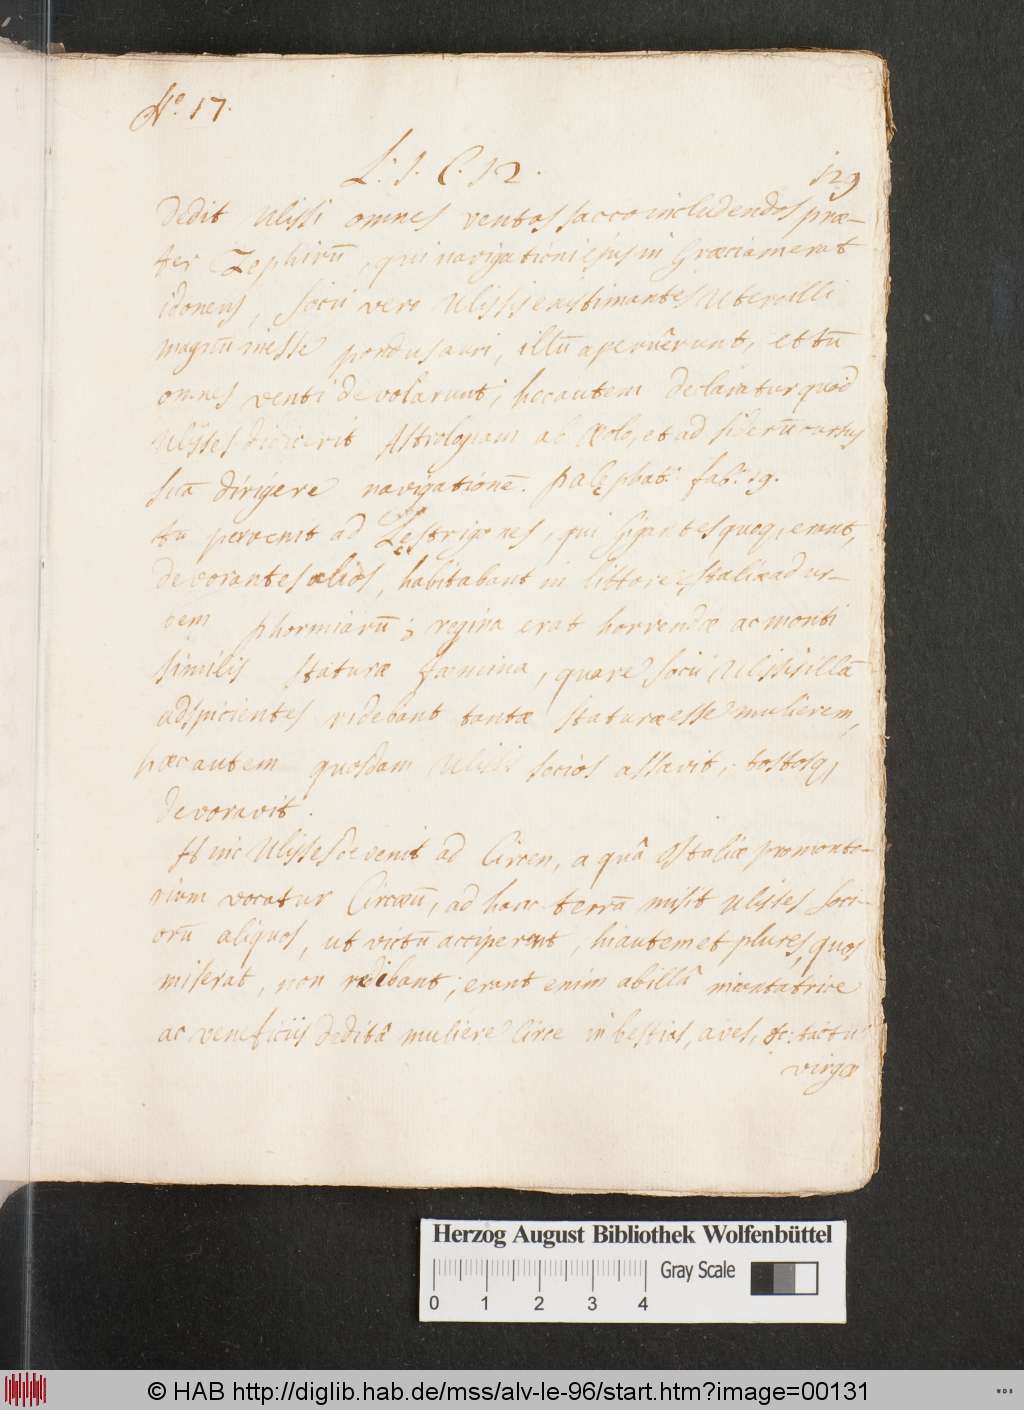 No. 17.
L. 1. C. 12.
129
dedit Ulissi omnes ventos sacco includendos præ-
ter Zephirū, qui navigationi ejus in Græciam erat
idoneus, socii vero Ulissis existimantes Uteri illi
magnū inesse pondus auri, illū aperuêrunt, et tū
omnes venti devolarunt; hoc autem declaratur quod
Ulysses didicerit Astrologiam ab Æolo, et ad siderū cursus
suā dirigere navigationē. Palęphat: fab: 19.
tū pervenit ad Lęstrigones, qui gigantes quoq, erant,
devorantes alios, habitabant in littore Italiæ ad ur-
bem Phormiarū; regina erat horrendæ ac monti
similis staturæ fæmina, quare socii Ulissis illā
adspicientes ridebant tantæ staturæ esse mulierem,
hæc autem quosdam Ulissi socios assavit, tostosq,
devoravit.
Hinc Ulisses devenit ad Circen, a quâ Italiæ promonto-
rium vocatur Circæū, ad hanc terrā misit Ulisses soci-
orū aliquos, ut victū acciperent, hi autem et plures, quos
miserat, non redibant; erant enim ab illâ incantatrice
ac veneficiis deditâ muliere Circe in bestias, aves, &c: tactu
virgæ
Herzog August Bibliothek Wolfenbüttel
Gray Scale
0 1 2 3 4
© HAB http://diglib.hab.de/mss/alv-le-96/start.htm?image=00131